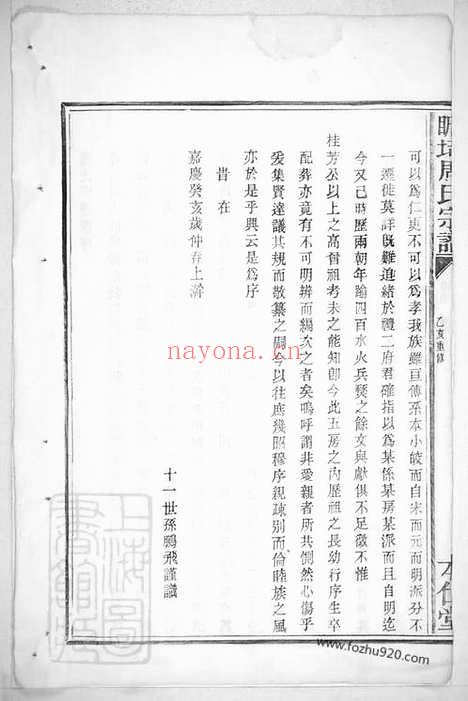 周氏宗譜
乙亥重修
可以爲仁更不可以爲孝我族雖亘傳系本小皴而自宋而元而明派分不
一遷徙莫詳旣難追緒於禮二府君確指以爲某係某房某派而且自明迄
今又已時歷兩朝年踰四百水火兵燹之餘文與獻俱不足徵不惟
桂芳公以上之高曾祖考未之能知卽今此五房之內歷祖之長幼行序生卒
配葬亦竟有不可明辨而編次之者矣嗚呼謂非愛親者所共惻然心傷乎
爰集賢達議其規而散纂之嗣今以往庶幾昭穆序親疎別而倫睦族之風
亦於是乎興云是爲序
昔在
嘉慶癸亥歲仲春上澣
十一世孫鵬飛謹識
nayona.cn
上海圖書館藏
www.fozhu920.com